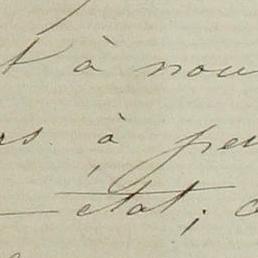 t à nou
rs à peu
état;